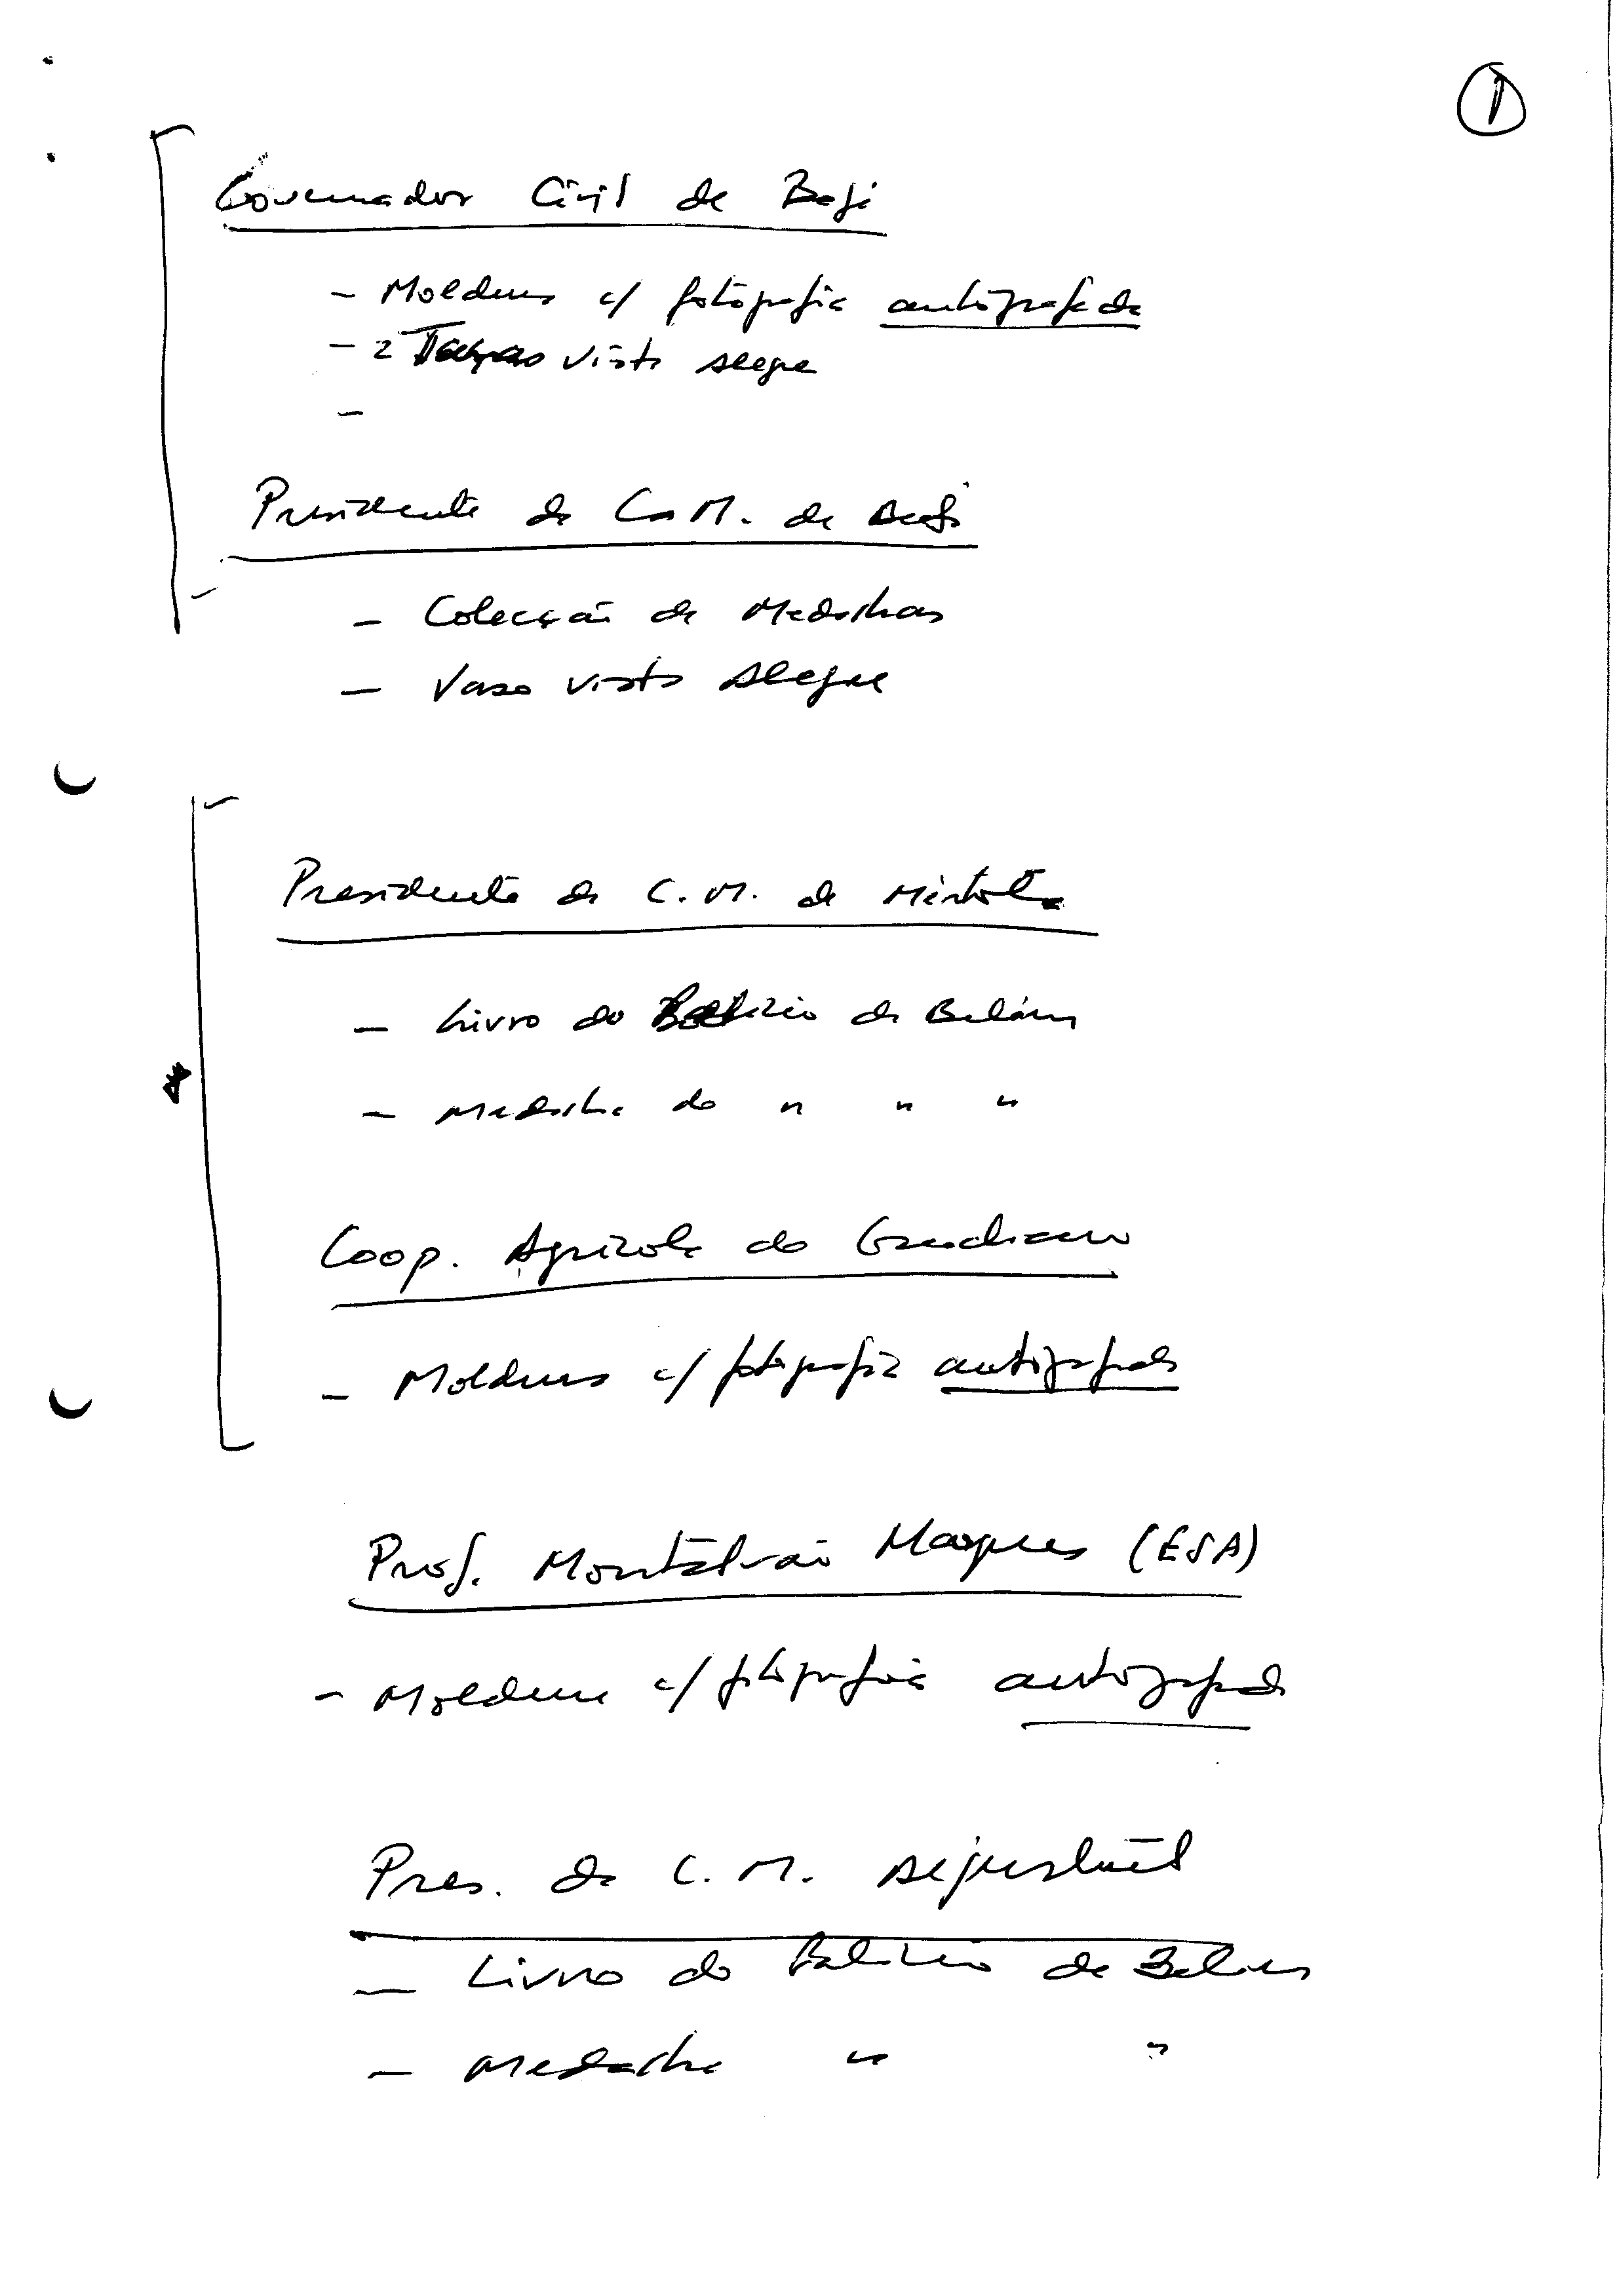 1
Governador Civil de Beja
- Moldura c/ fotografia autografada
- 2 Taças Vista Alegre
-
Presidente da C.M. de Beja
- Colecção de Medalhas
- Vaso Vista Alegre
Presidente da C.M. de Mértola
- Livro do Palácio de Belém
- Medalha do " " "
Coop. Agrícola do Guadiana
- Moldura c/ fotografia autografada
Prof. Montalvão Marques (ESA)
- Moldura c/ fotografia autografada
Pres. da C.M. Aljustrel
- Livro do Palácio de Belém
- Medalha " "